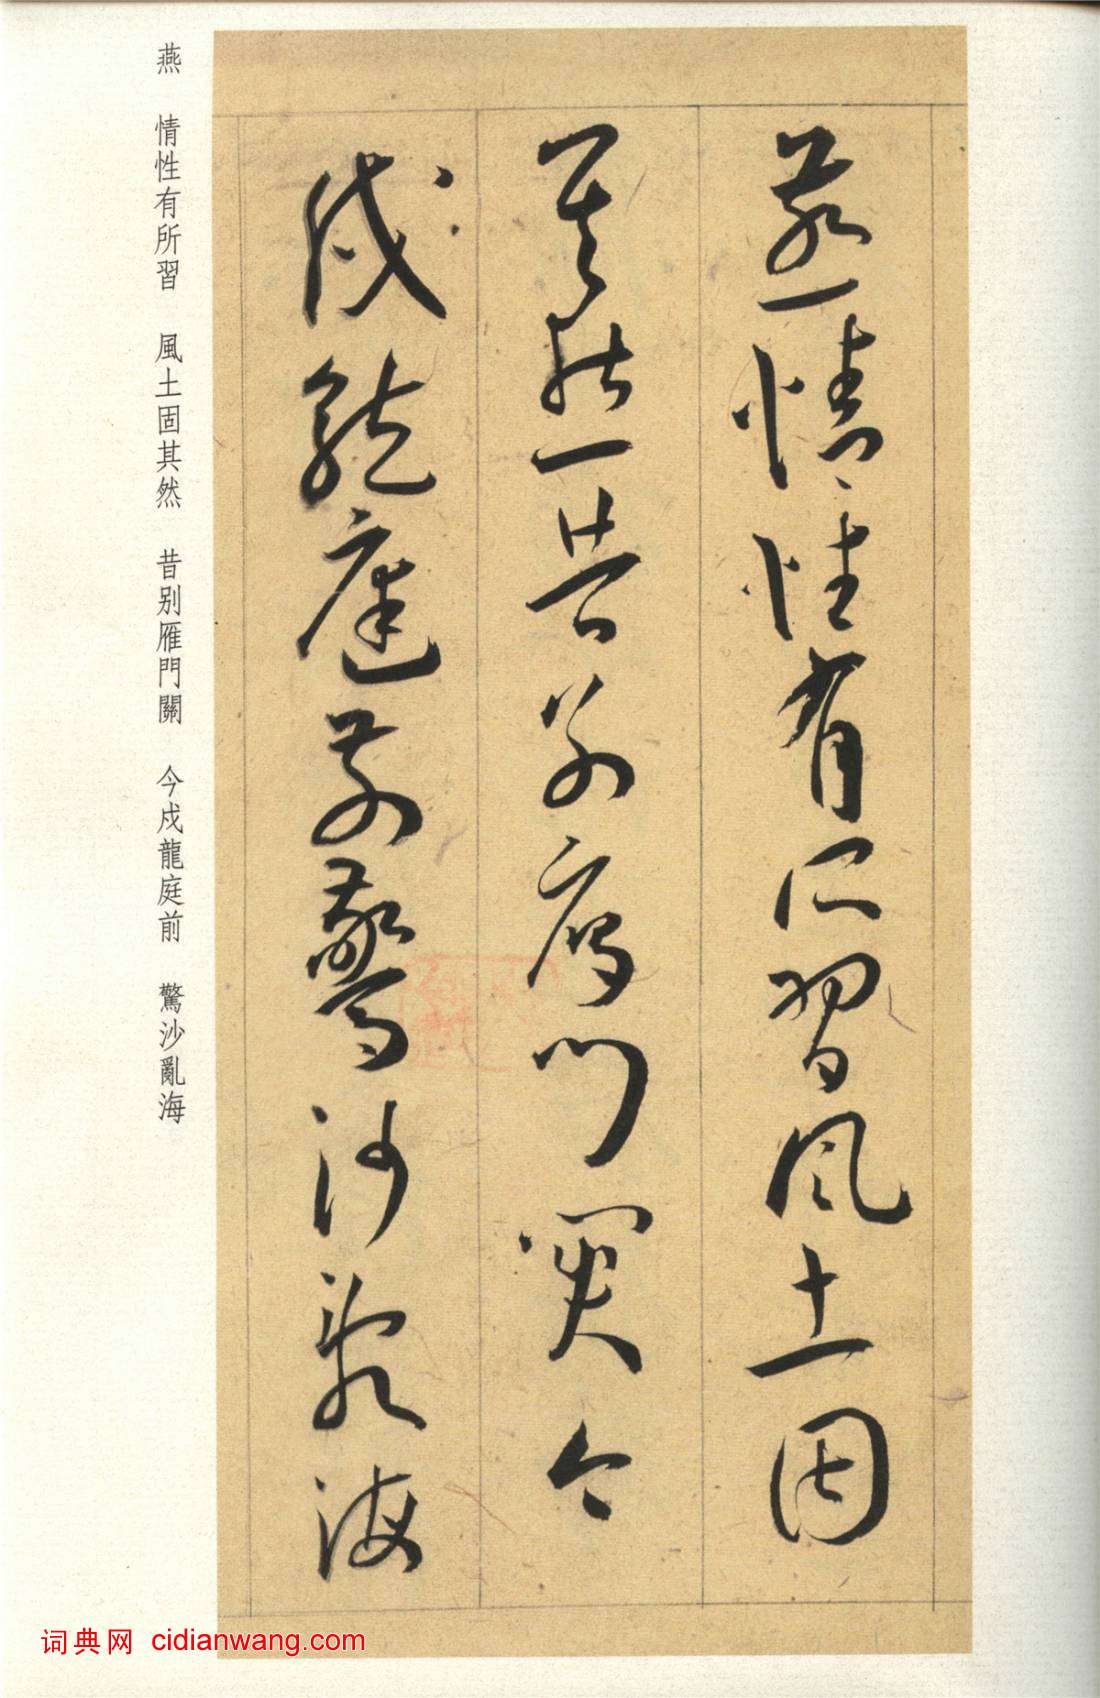 燕情性有所習風土固
其然昔别雁門關今
戍龍庭前驚沙亂海
燕　情性有所習　風土固其然　昔别雁門關　今戍龍庭前　驚沙亂海
词典网 cidianwang.com